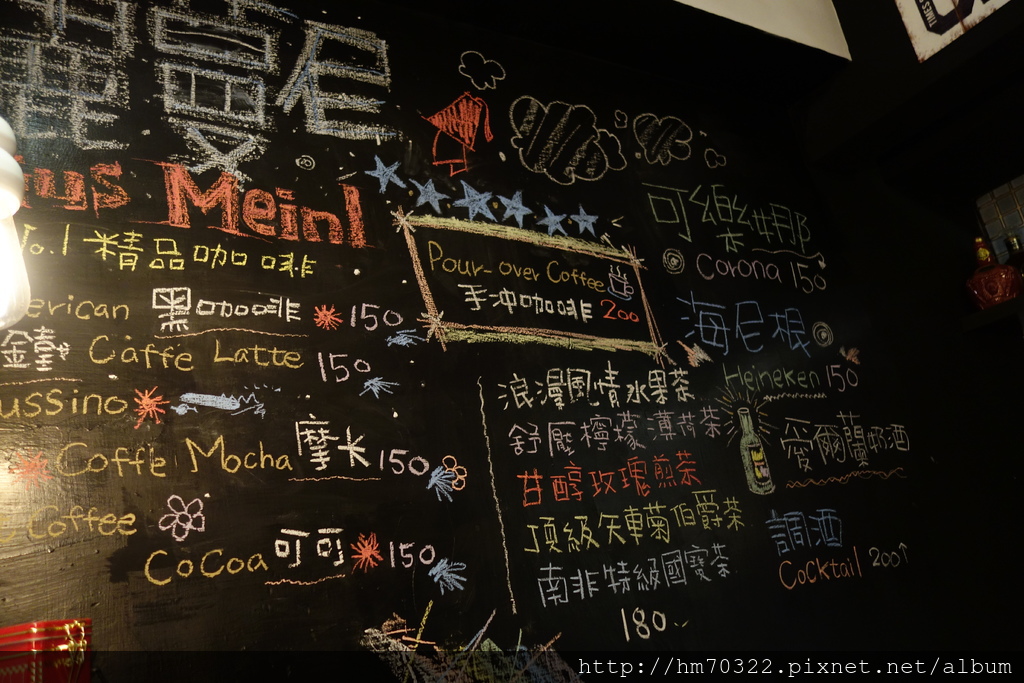 曼尼
us Meinl
No.1 精品咖啡
erican 黑咖啡 150
Caffe Latte 150
ussino
Coffe Mocha 摩卡 150
Coffee
CoCoa 可可 150
Pour-over Coffee
手沖咖啡 200
浪漫風情水果茶
舒壓檸檬薄荷茶
甘醇玫瑰煎茶
頂級矢車菊伯爵茶
南非特級國寶茶
180
可樂娜
Corona 150
海尼根
Heineken 150
愛爾蘭奶酒
調酒
Cocktail 200↑
TIMES S
http://hm70322.pixnet.net/album